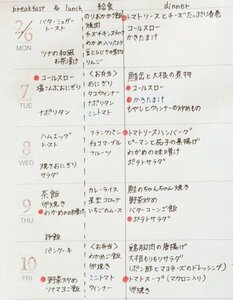 breakfast & lunch 給食 dinner
2/6 MON
バターシュガートースト
ツナの和風お茶漬け
のりおかかご飯
焼肉
チーズチキンスティック
わかめパリパリ
豆とどんぐり
りんご
トマトソースとチーズたっぷり春巻
コールスロー
かきたまけ
7 TUE
コールスロー
塩こんぶおにぎり
ナポリタン
〈お弁当〉
おにぎり
タコウィンナー
ナポリタン
ミニトマト
鮭缶と大根の煮物
コールスロー
かきたまけ
もやしとウィンナーの炒めもの
8 WED
ハムエッグトースト
焼きおにぎり
サラダ
フランクパン
チョコマーブル
フルーツ
トマトソースハンバーグ
ピーマンと茄子の素揚げ
わかめの味噌汁
ポテトサラダ
9 THU
茶飯
卵焼き
わかめの味噌汁
炒飯
カレーライス
星型コロッケ
いちごのムース
鮭のちゃんちゃん焼き
野菜炒め
バターコーンご飯
ポテトサラダ
10 FRI
パンケーキ
野菜炒め
ツナマヨご飯
〈お弁当〉
わかめご飯
卵焼き
ミニトマト
ウィンナー
鶏胸肉の唐揚げ
大根もりもりサラダ
(ポン酢とマヨネーズのドレッシング)
トマトスープ(マカロニ入り)
卵焼き